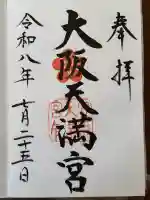 奉拝
大阪天満宮
令和八年七月二十五日